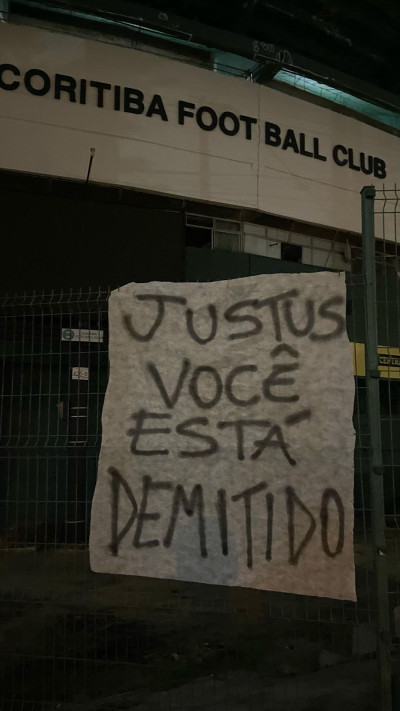 CORITIBA FOOT BALL CLUB
JUSTUS
VOCÊ
ESTÁ
DEMITIDO